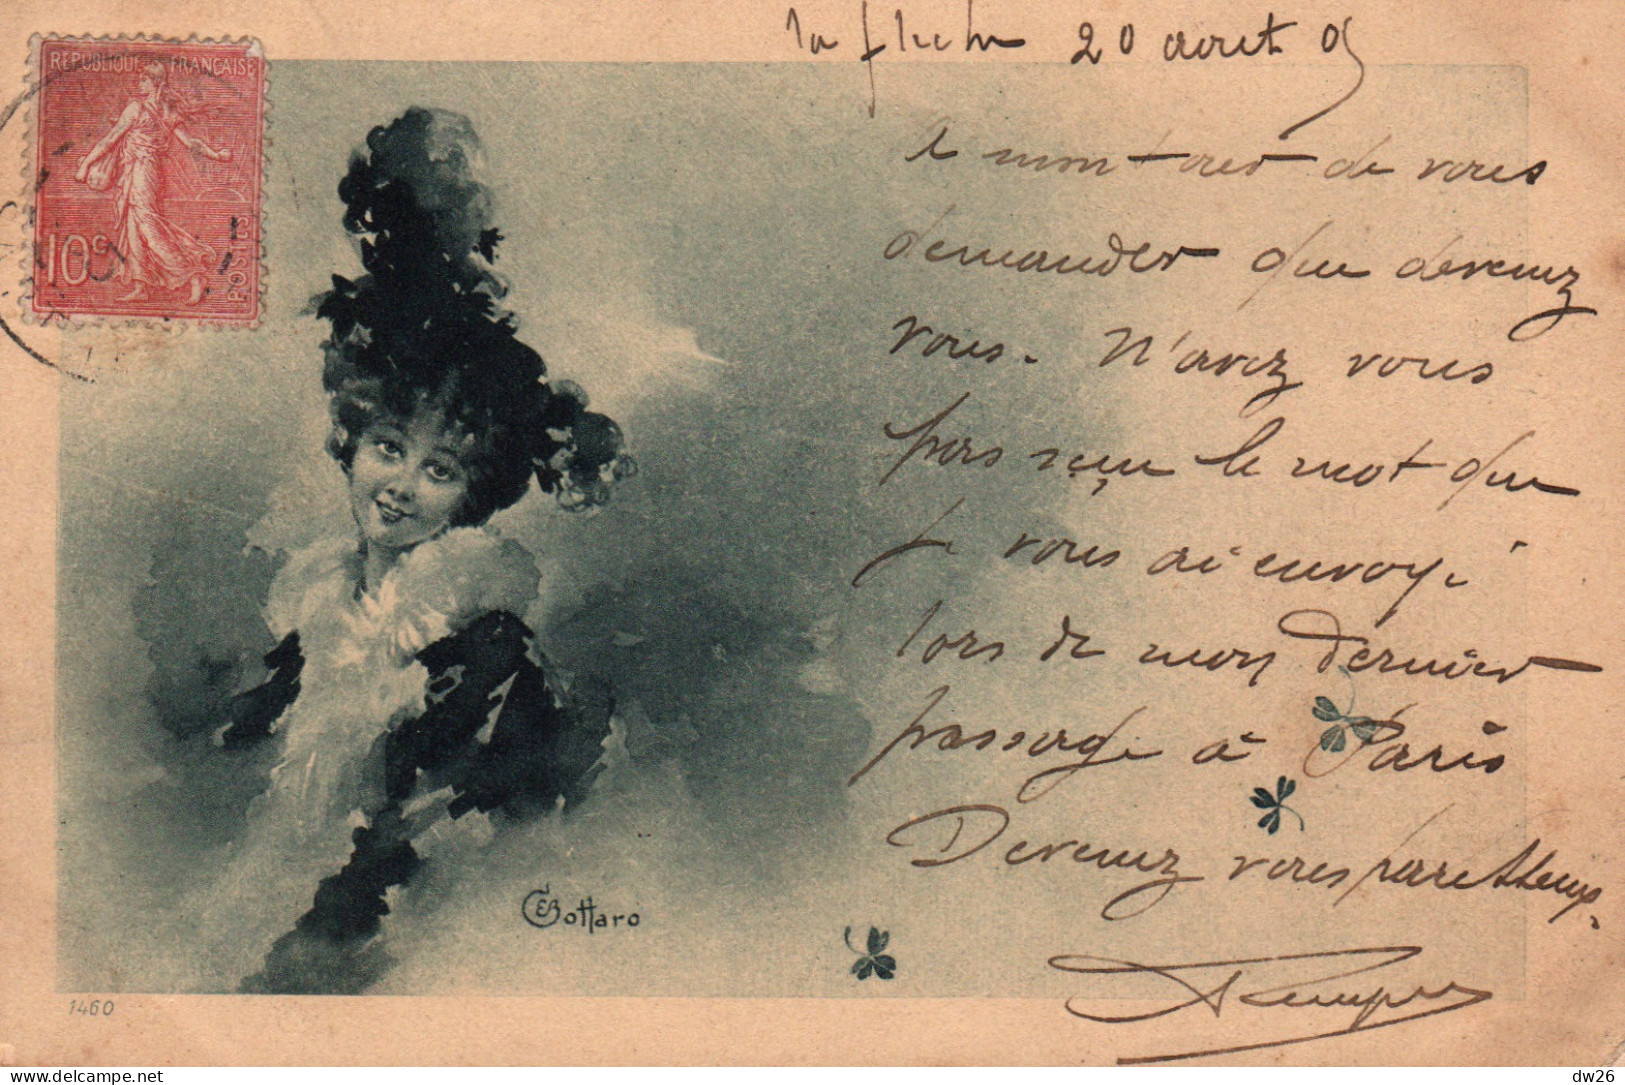 la fleche 20 aout 05
REPUBLIQUE FRANÇAISE
10c
POSTES
A mon tour de vous
demander que devenez
vous. N'avez vous
pas reçu le mot que
je vous ai envoyé
lors de mon dernier
passage à Paris
Devenez vous
EBottaro
1460
dw26